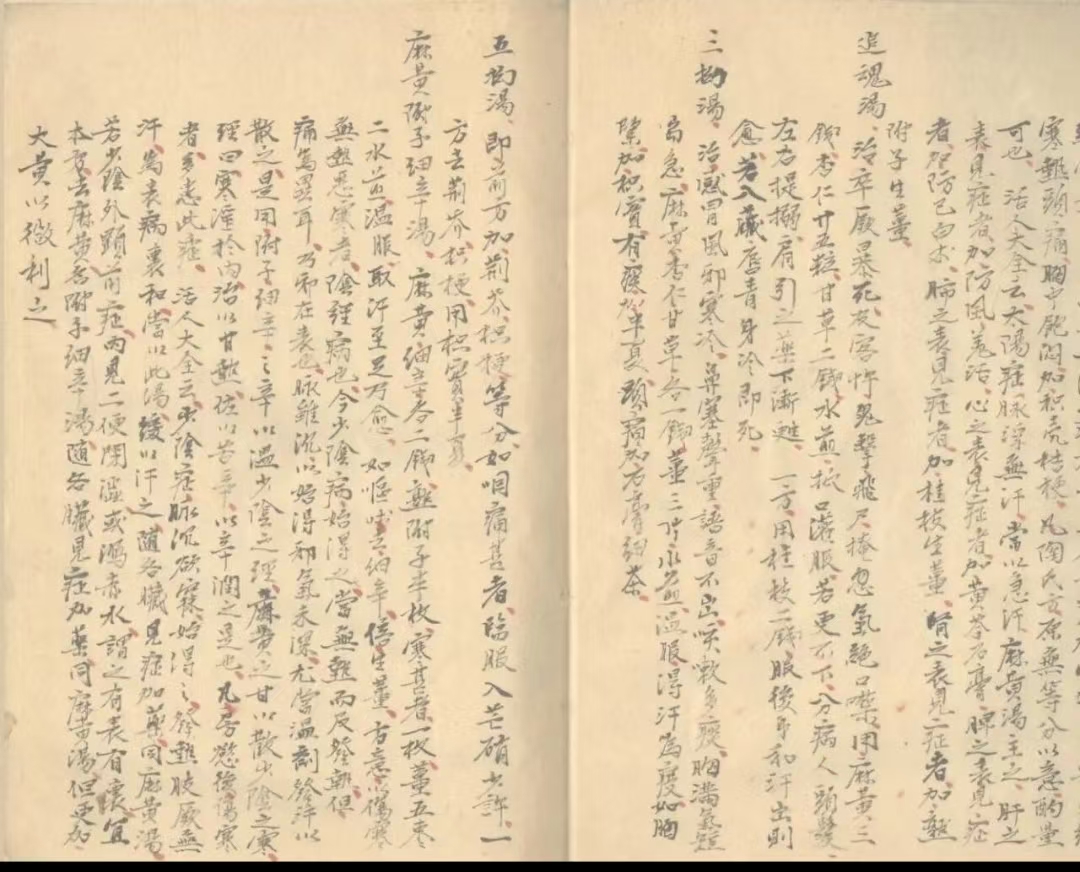 寒熱頭痛胸中飽悶加枳壳桔梗、凡陶氏立方原無等分以意酌量
可也、活人大全云太陽症脉浮無汗、當以急汗、麻黄湯主之、肝之
表見症者、加防風羗活、心之表見症者、加黄芩石膏、脾之表見症
者、加防已白朮、肺之表見症者、加桂枝生薑、腎之表見症者、加熟
附子生薑
追魂湯、治卒厥暴死、及客忤鬼擊飛尸、掩忽氣絶口噤、用麻黄三
錢杏仁廿五粒、甘草二錢水煎、抵口灌服、若更不下、分病人頭髮、
左右提搦肩引之藥下漸甦、一方用桂枝二錢、服後平和汗出則
愈、若入藏唇青身冷即死、
三拗湯、治感冒風邪寒冷、鼻塞聲重語音不出、咳嗽多痰、胸滿氣短
喘急、麻黄杏仁甘草各一錢薑三片水煎温服得汗為度如胸
緊加枳實、有痰加半夏、頭痛加石膏細茶
五拗湯、即前方加荆芥桔梗等分、如咽痛甚者、臨服入芒硝少許、一
方去荆芥、桔梗用枳實半夏、
麻黄附子細辛湯、麻黄細辛各二錢、熟附子半枚、寒甚者一枚薑五片
二水煎温服、取汗至足乃愈、如嘔吐去細辛、倍生薑、古意以傷寒
無熱惡寒者、陰經病也、今少陰病始得之、當無熱而反發熱、但
痛為異耳、乃邪在表也、脉雖沉、以始得邪氣未深、尤當温劑發汗以
散之、是用附子細辛、之辛以温少陰之經、麻黄之甘以散少陰之寒
經曰、寒淫於内、治以甘熱、佐以苦辛、以辛潤之是也、凡房慾後傷寒
者、多患此症、活人大全云、少陰症脉沉欲寐、始得之發熱肢厥無
汗、為表病裏和、當以此湯、緩以汗之、隨各臟見症加藥、同麻黄湯
若少陰外顯前症、内見二便閉澁或瀉赤水、謂之有表有裏、宜
本方去麻黄名附子細辛湯、随各臟見症加藥、同麻黄湯、但更加
大黄以微利之、